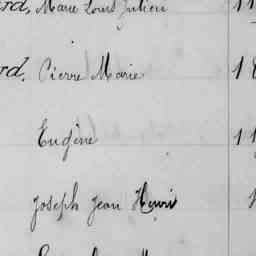 rd, Marie Louis Julien 11
rd. Pierre Marie 18
Eugène 11
Joseph Jean Henri